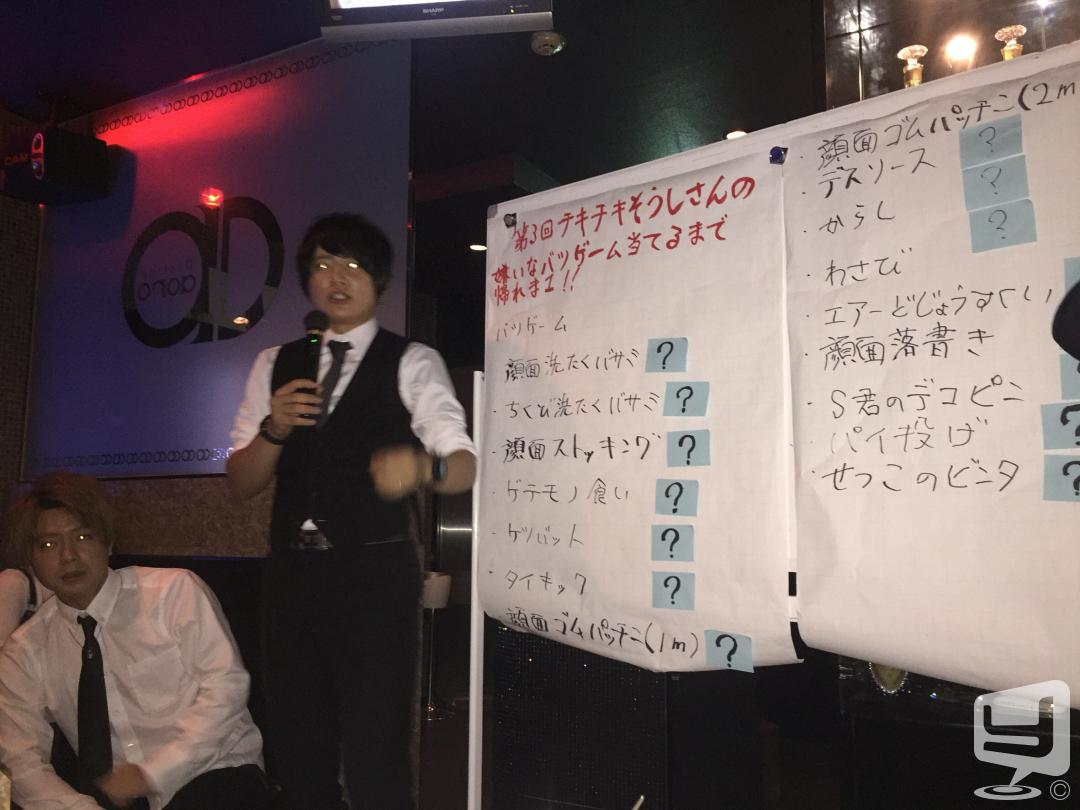 SHARP
第3回チキチキそうしさんの
嫌いなバツゲーム当てるまで
帰れまエ!!
バツゲーム
顔面洗たくバサミ ?
・ちくび洗たくバサミ ?
・顔面ストッキング ?
・ゲテモノ食い ?
・ケツバット ?
・タイキック ?
・顔面ゴムパッチン(1m) ?
・顔面ゴムパッチン(2m
?
・デスソース ?
・からし ?
・わさび
・エアーどじょうすくい
・顔面落書き
・S君のデコピン
・パイ投げ ?
・せつこのビンタ ?